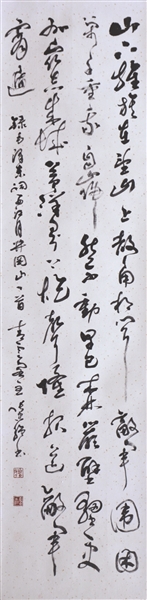 山下旌旗在望山上鼓角相闻敌军围困
万千重我自岿然不动早已森严壁垒更
加众志成城黄洋界上炮声隆报道敌军
宵遁 录毛泽东词西江月井冈山一首